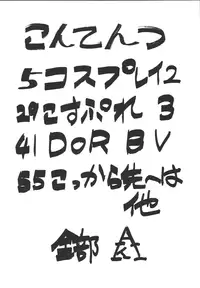 こんてんつ
5コスプレイ2
29こすぷれ 3
41 DoR BV
55こっから先へは
他
全部 A